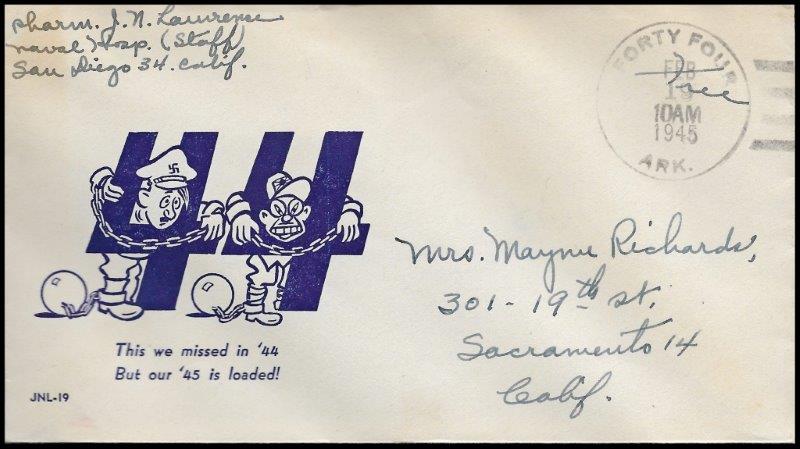 Pharm. J. N. Lawrence
Naval Hosp. (Staff)
San Diego 34. Calif.
FORTY FOUR
FEB
Free
19
10AM
1945
ARK.
44
This we missed in '44
But our '45 is loaded!
JNL-19
Mrs. Mayme Richards,
301 - 19th St.
Sacramento 14
Calif.